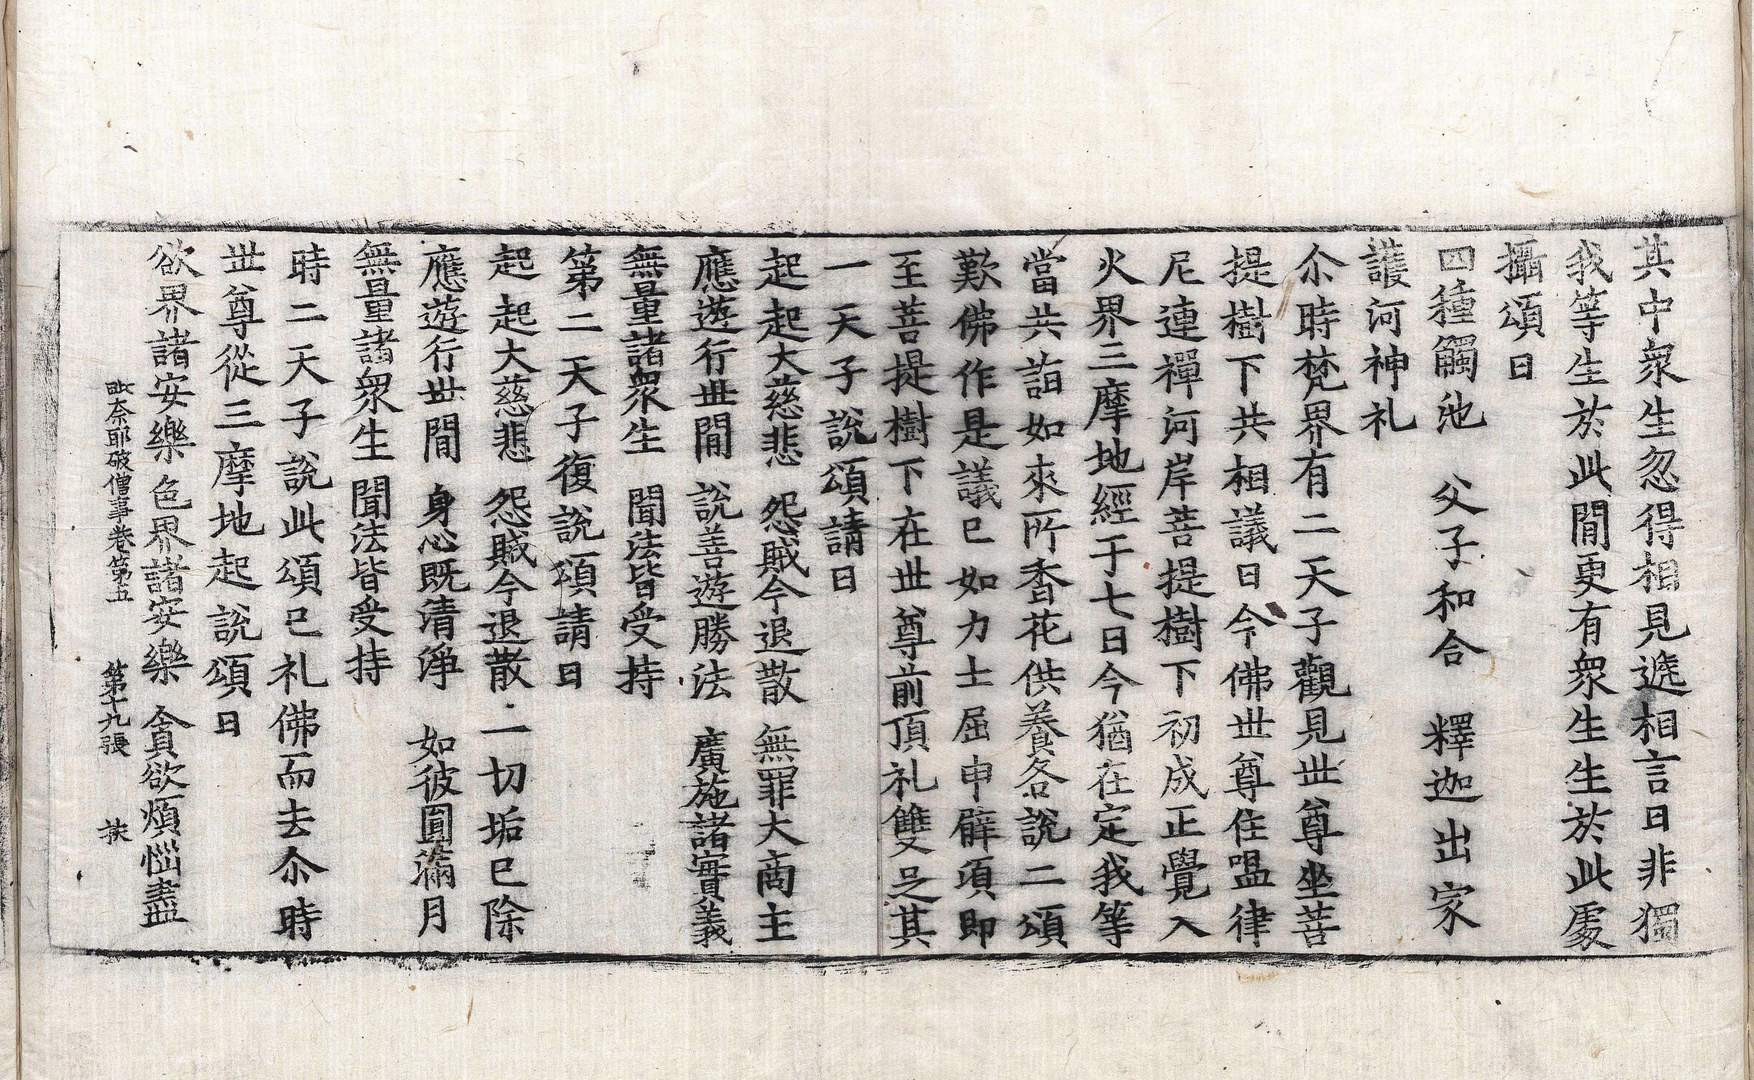 其中衆生忽得相見遞相言曰非獨
我等生於此間更有衆生生於此處
攝頌曰
四種觸池　父子和合　釋迦出家
護河神礼
尒時梵界有二天子觀見世尊坐菩
提樹下共相議曰今佛世尊住嗢律
尼連禪河岸菩提樹下初成正覺入
火界三摩地經于七日今猶在定我等
當共詣如來所香花供養各說二頌
歎佛作是議已如力士屈申臂項即
至菩提樹下在世尊前頂礼雙足其
一天子說頌請曰
起起大慈悲　怨賊今退散　無罪大商主
應遊行世間　說善遊勝法　廣施諸實義
無量諸衆生　聞法皆受持
第二天子復說頌請曰
起起大慈悲　怨賊今退散　一切垢已除
應遊行世間　身心既清淨　如彼圓滿月
無量諸衆生　聞法皆受持
時二天子說此頌已礼佛而去尒時
世尊從三摩地起說頌曰
欲界諸安樂　色界諸安樂　貪欲煩惱盡
毗奈耶破僧事卷第五　第十九張　扶